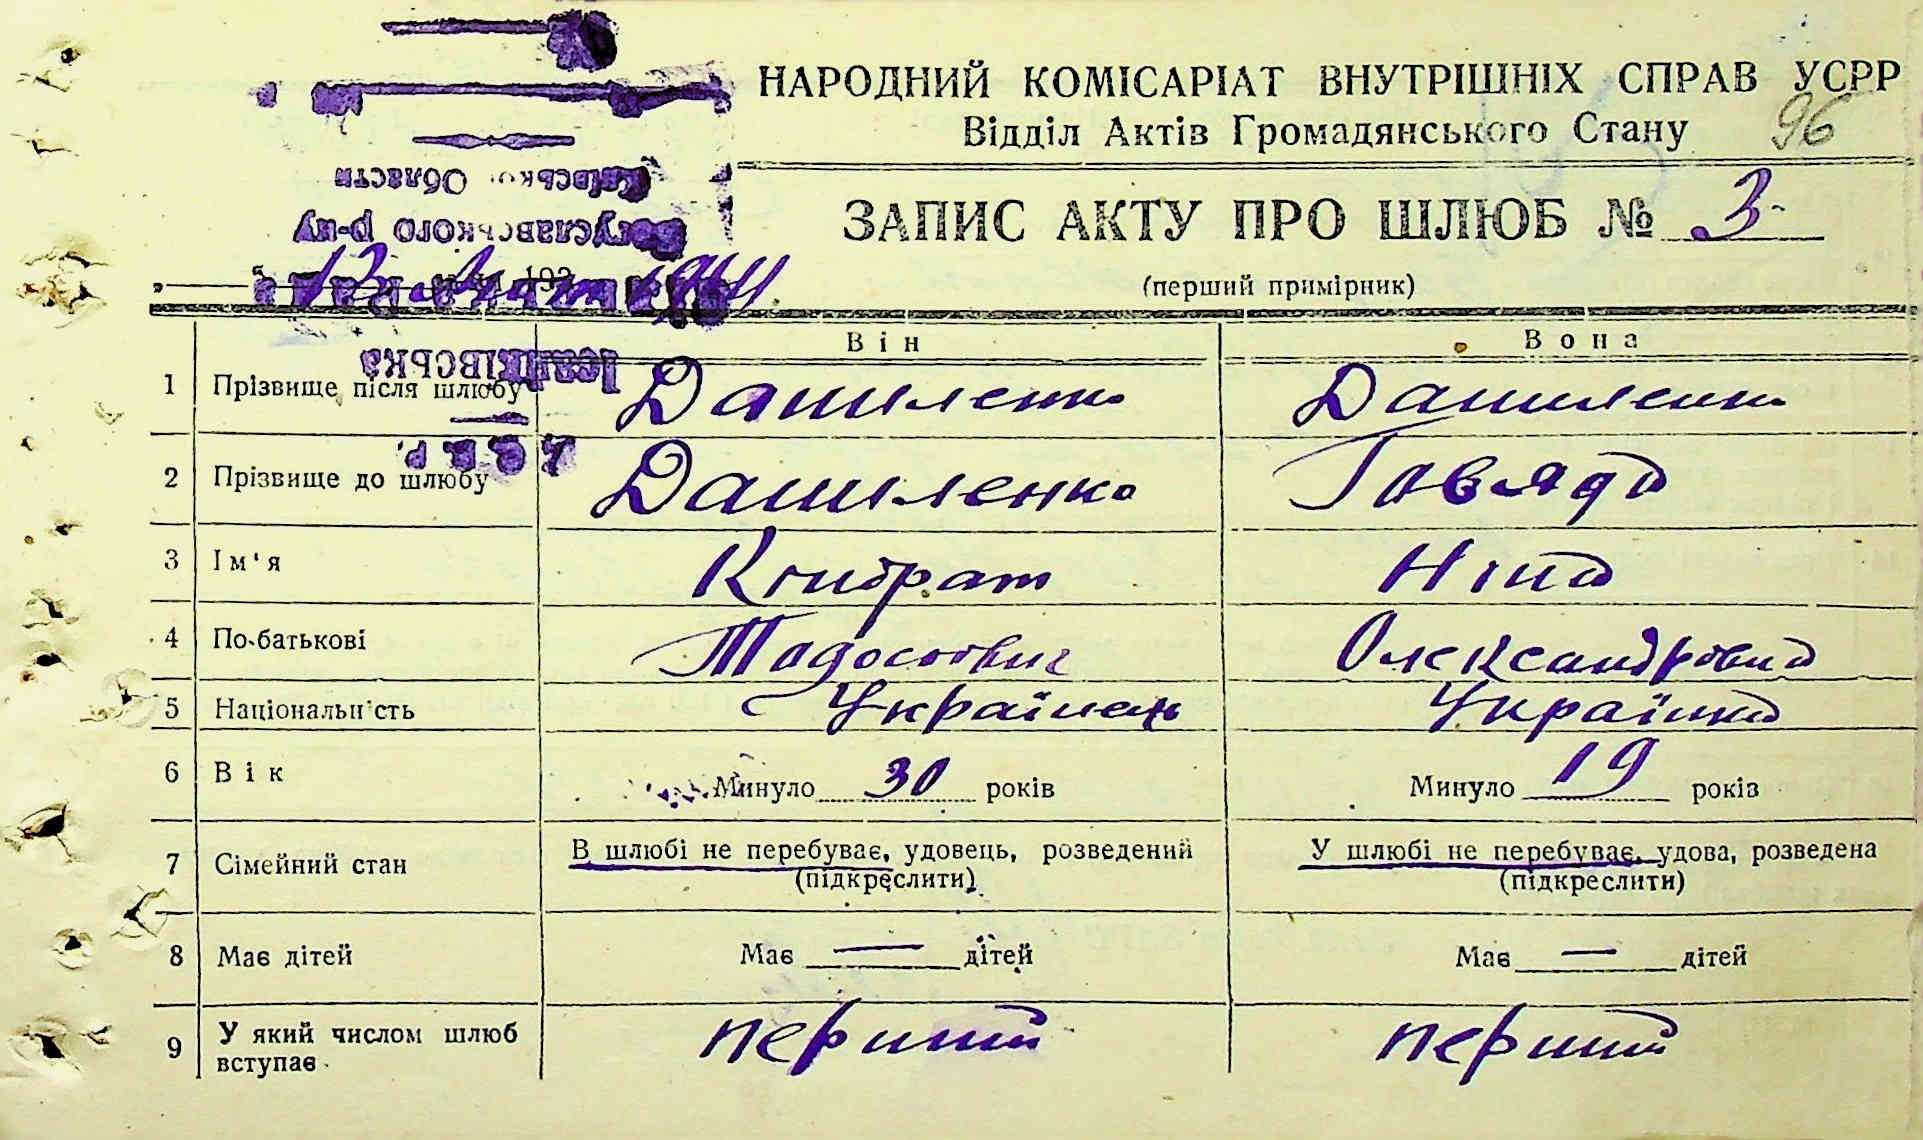 НАРОДНИЙ КОМІСАРІАТ ВНУТРІШНІХ СПРАВ УСРР
Відділ Актів Громадянського Стану 96
Київської Области
Богуславського р-ну
ЗАПИС АКТУ ПРО ШЛЮБ № 3
13 193 1944
(перший примірник)
Він Вона
Ісайківська
1 Прізвище після шлюбу Даниленко Даниленко
У.С.Р.Р.
2 Прізвище до шлюбу Даниленко Говядо
3 Ім'я Кондрат Ніна
4 По-батькові Тодосьович Олександровна
5 Національність Українець Українка
6 Вік Минуло 30 років Минуло 19 років
7 Сімейний стан В шлюбі не перебуває, удовець, розведений У шлюбі не перебуває, удова, розведена
(підкреслити) (підкреслити)
8 Має дітей Має — дітей Має — дітей
9 У який числом шлюб вступає перший перший